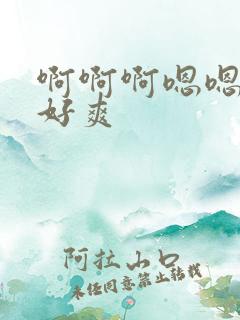 啊啊啊嗯嗯
好爽
阿拉山口
未经同意禁止转载